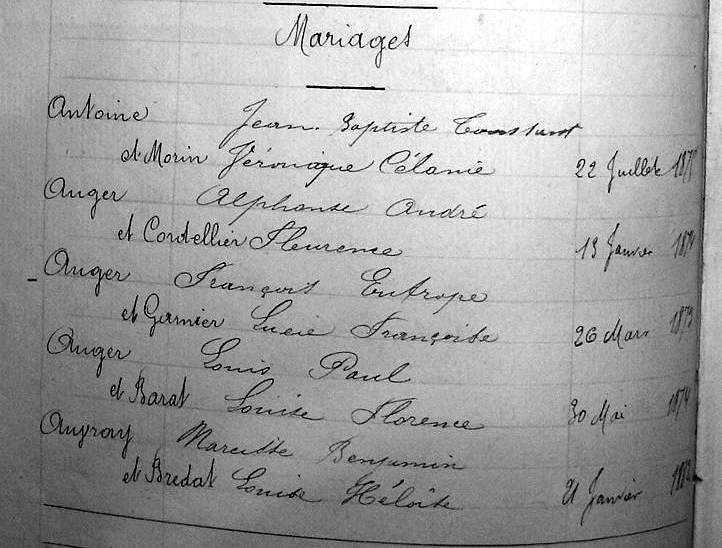 Mariages
Antoine Jean Baptiste Constant
et Morin Véronique Célanie 22 Juillet
Auger Alphonse André
et Cordellier Fleurence 13 Janvier
Auger François Eutrope
et Garnier Lucie Françoise 26 Mars 1873
Auger Louis Paul
et Barat Louise Florence 30 Mai 1874
Auvray Narcisse Benjamin
et Bredat Louise Héloïse 21 Janvier